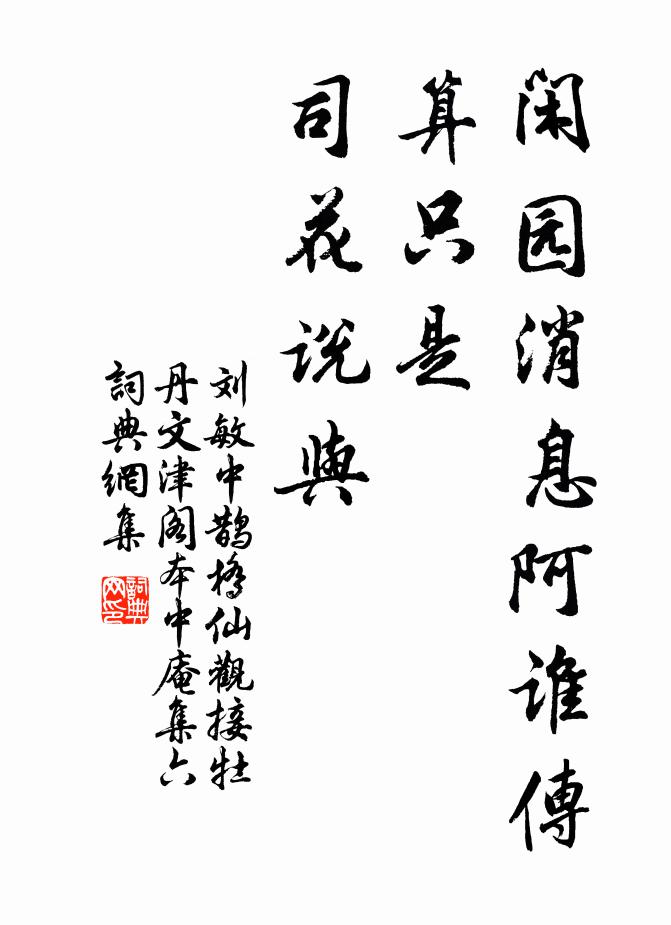 闲园消息阿谁傳
算只是
司花说與
刘敏中鹊橋仙觀接牡
丹文津阁本中庵集六
詞典網集
詞典網印